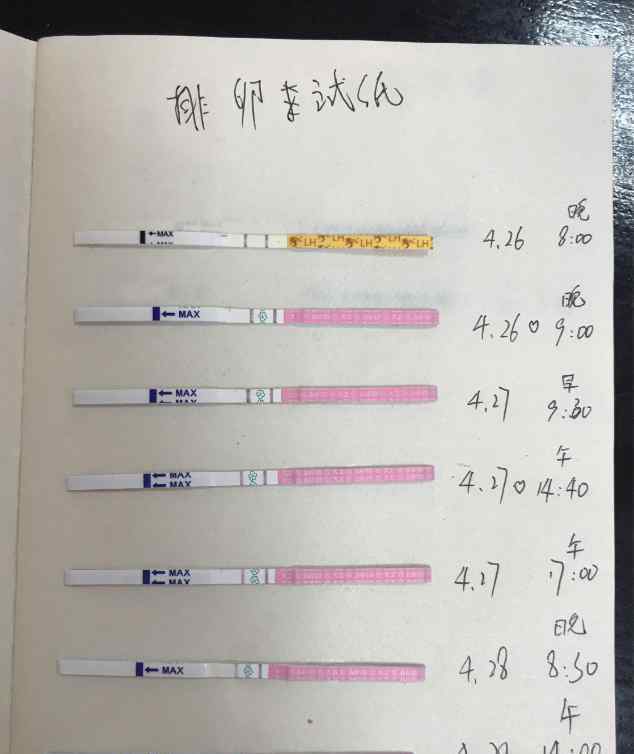 排卵试纸
晚
←MAX LH LH LH LH 4.26 8:00
晚
← MAX 4.26♡ 9:00
早
← MAX 4.27 9:30
午
← MAX
← MAX 4.27♡ 14:40
午
← MAX 4.27 17:00
晚
← MAX 4.28 8:50
午